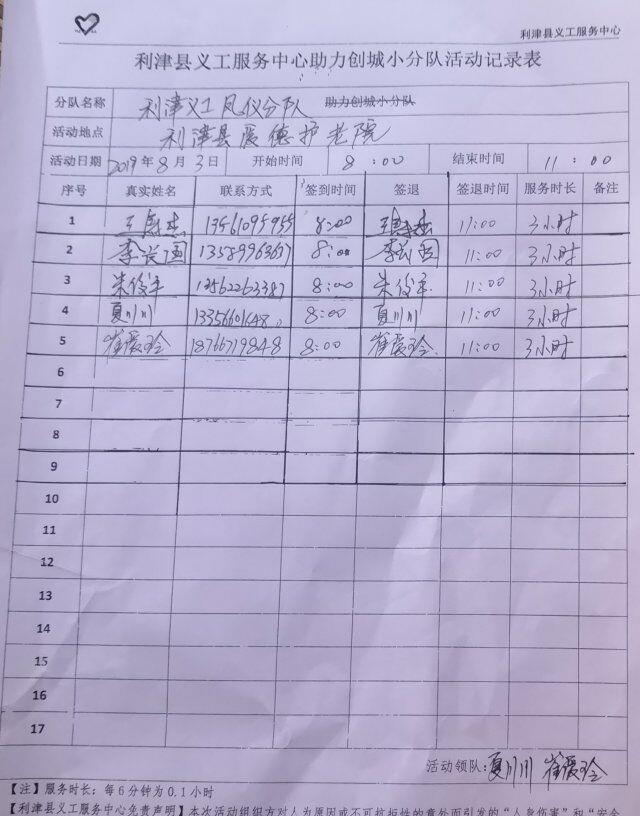 利津县义工服务中心
利津县义工服务中心助力创城小分队活动记录表
分队名称 利津义工凤仪分队 助力创城小分队
活动地点 利津县廣德护老院
活动日期 2019年8月3日 开始时间 8:00 结束时间 11:00
序号 真实姓名 联系方式 签到时间 签退 签退时间 服务时长 备注
1 13561095955 8:00 11:00 3小时
2 李兴国 8:00 李兴国 11:00 3小时
3 朱俊军 13562262387 8:00 朱俊军 11:00 3小时
4 夏川川 13356601648 8:00 夏川川 11:00 3小时
5 崔爱玲 18766719848 8:00 崔爱玲 11:00 3小时
6
7
8
9
10
11
12
13
14
15
16
17
活动领队:夏川川 崔爱玲
【注】服务时长:每6分钟为0.1小时
【利津县义工服务中心免责声明】本次活动组织方对人为原因或不可抗拒性的意外而引发的“人身伤害”和“安全